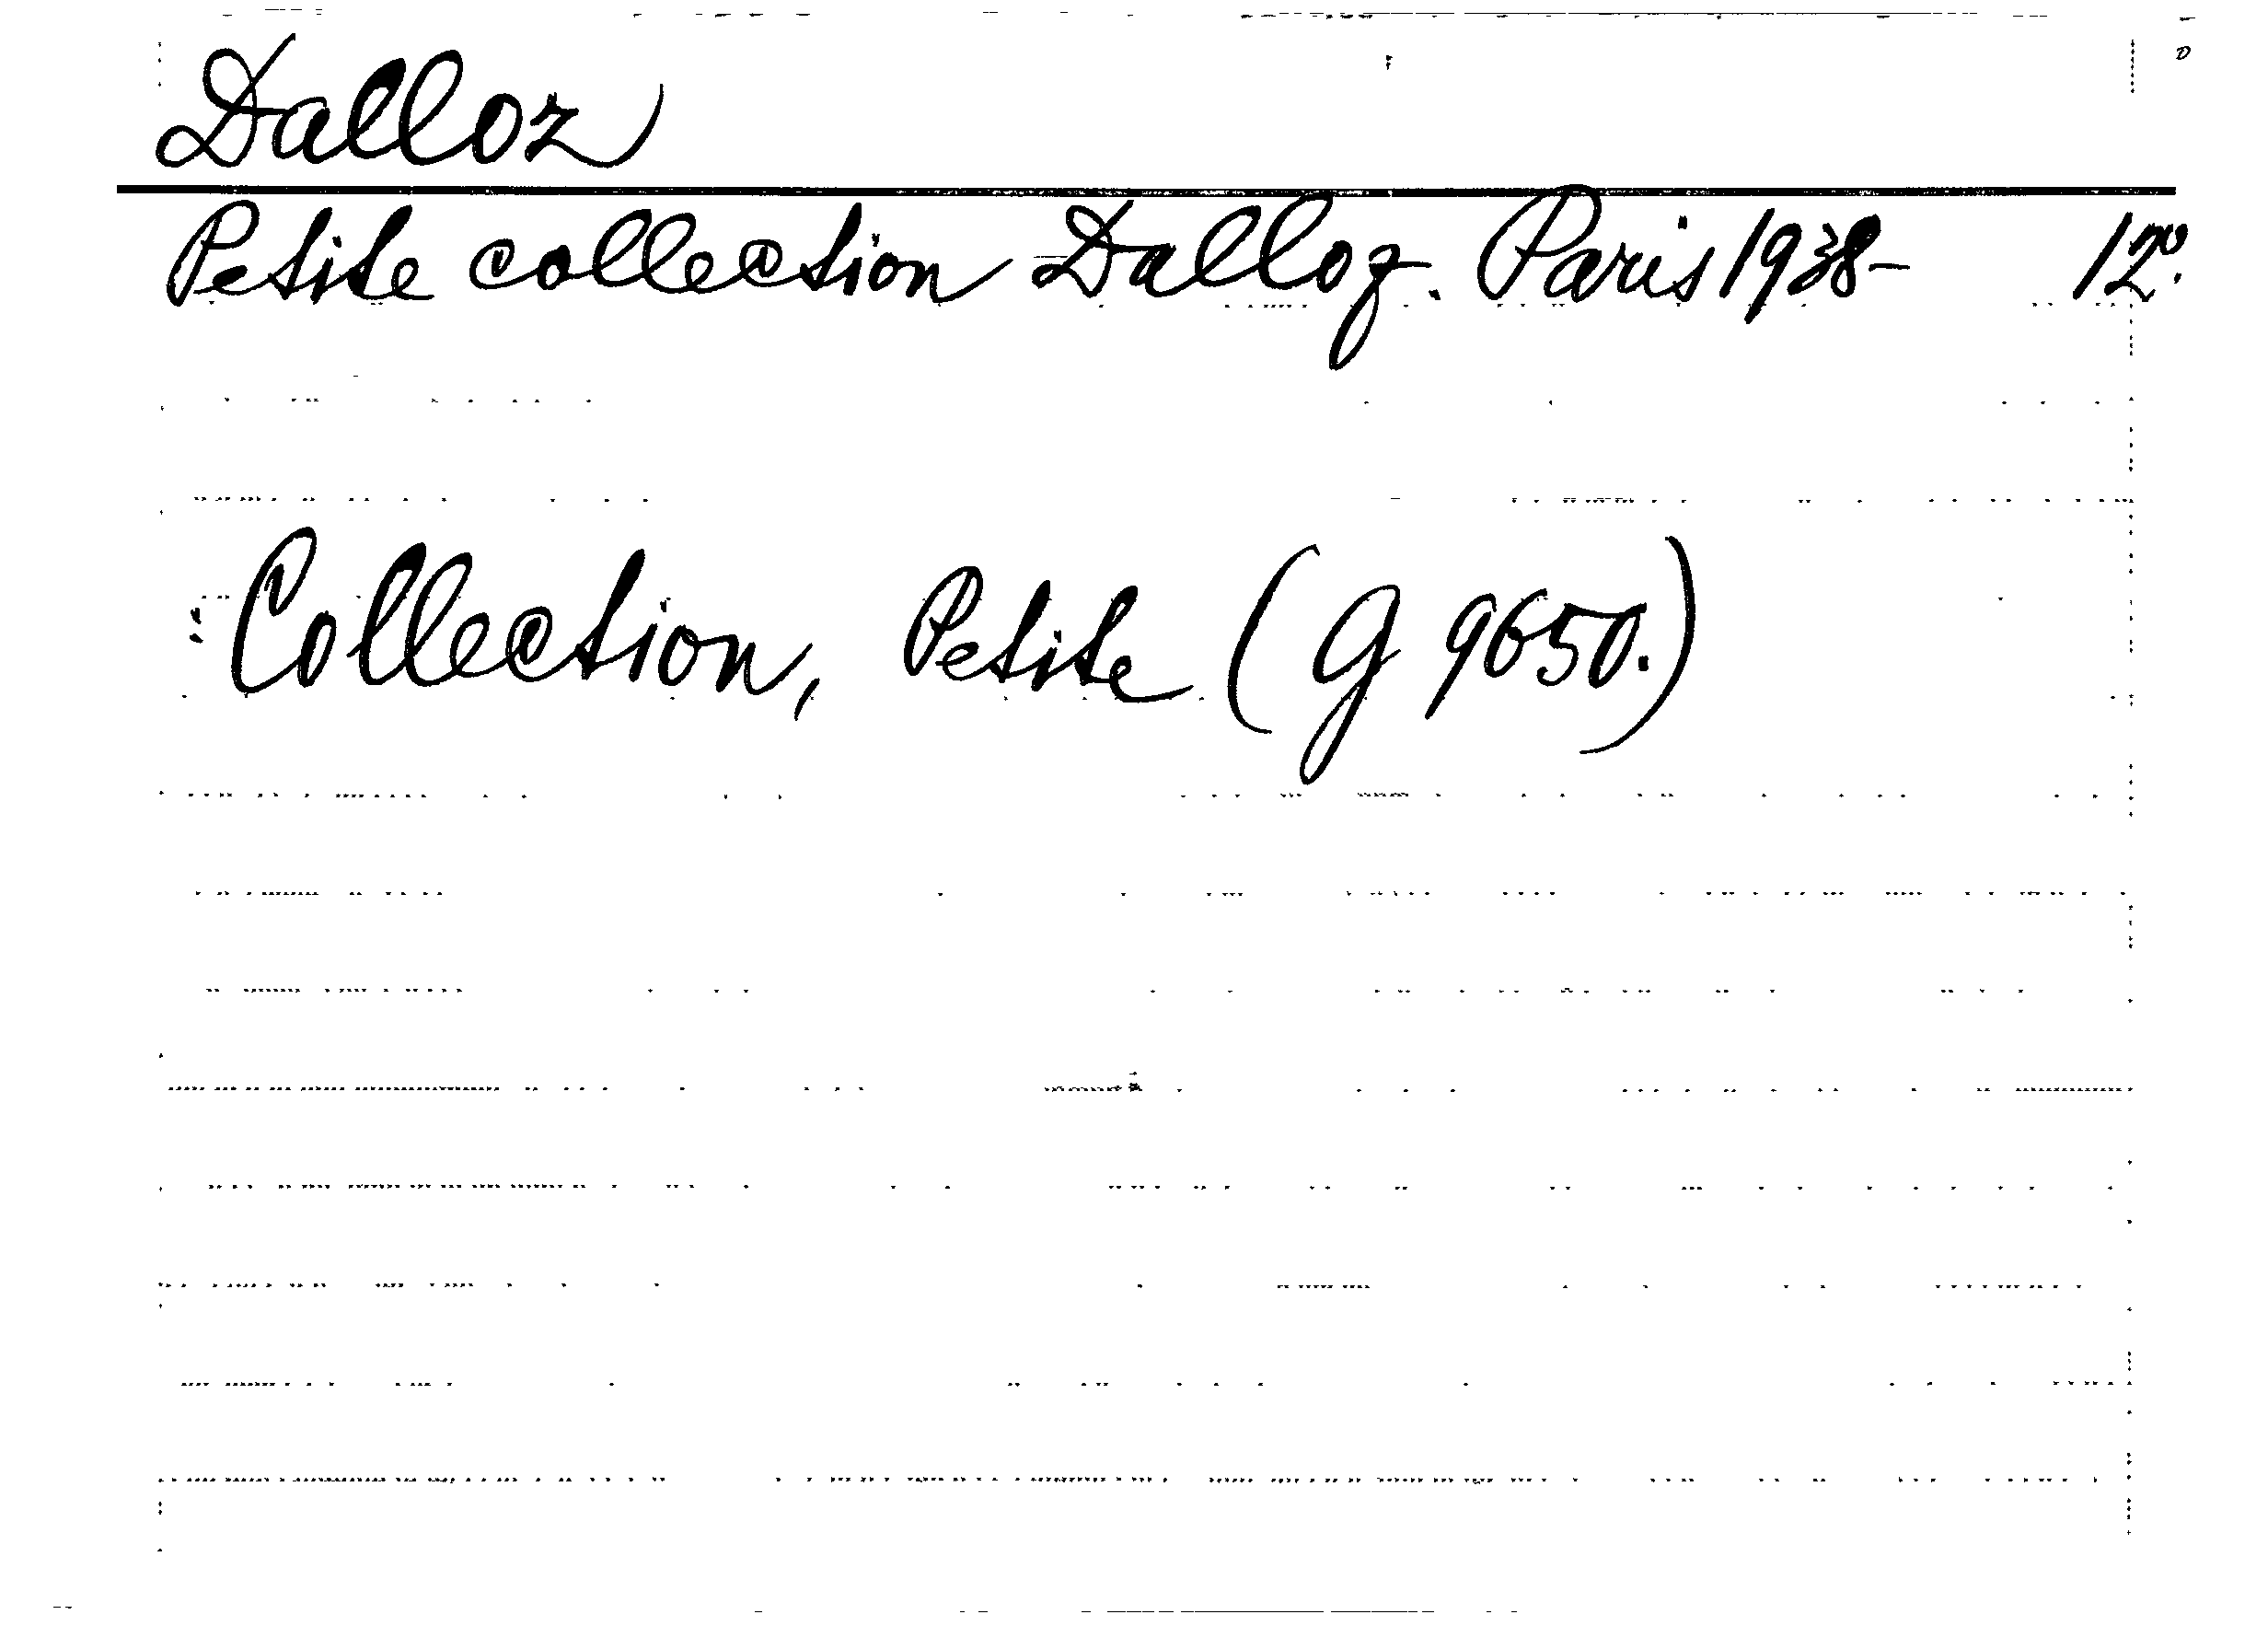 Dalloz
Petite collection Dalloz. Paris 1938- 12º.
: Collection, Petite (G 9650.)